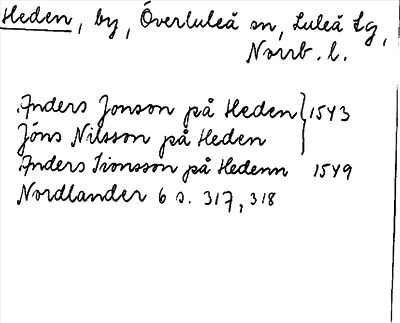 Heden, by, Överluleå sn, Luleå tg,
Norrb. l.
Anders Jonson på Heden } 1543
Jöns Nilsson på Heden
Anders Sionsson på Hedenn 1549
Nordlander 6 s. 317, 318